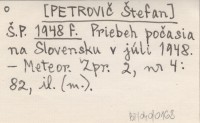 [PETROVIČ Štefan]
Š.P. 1948 F. Priebeh počasia
na Slovensku v júli 1948.
– Meteor. Zpr. 2, nr 4:
82, il. (m.).